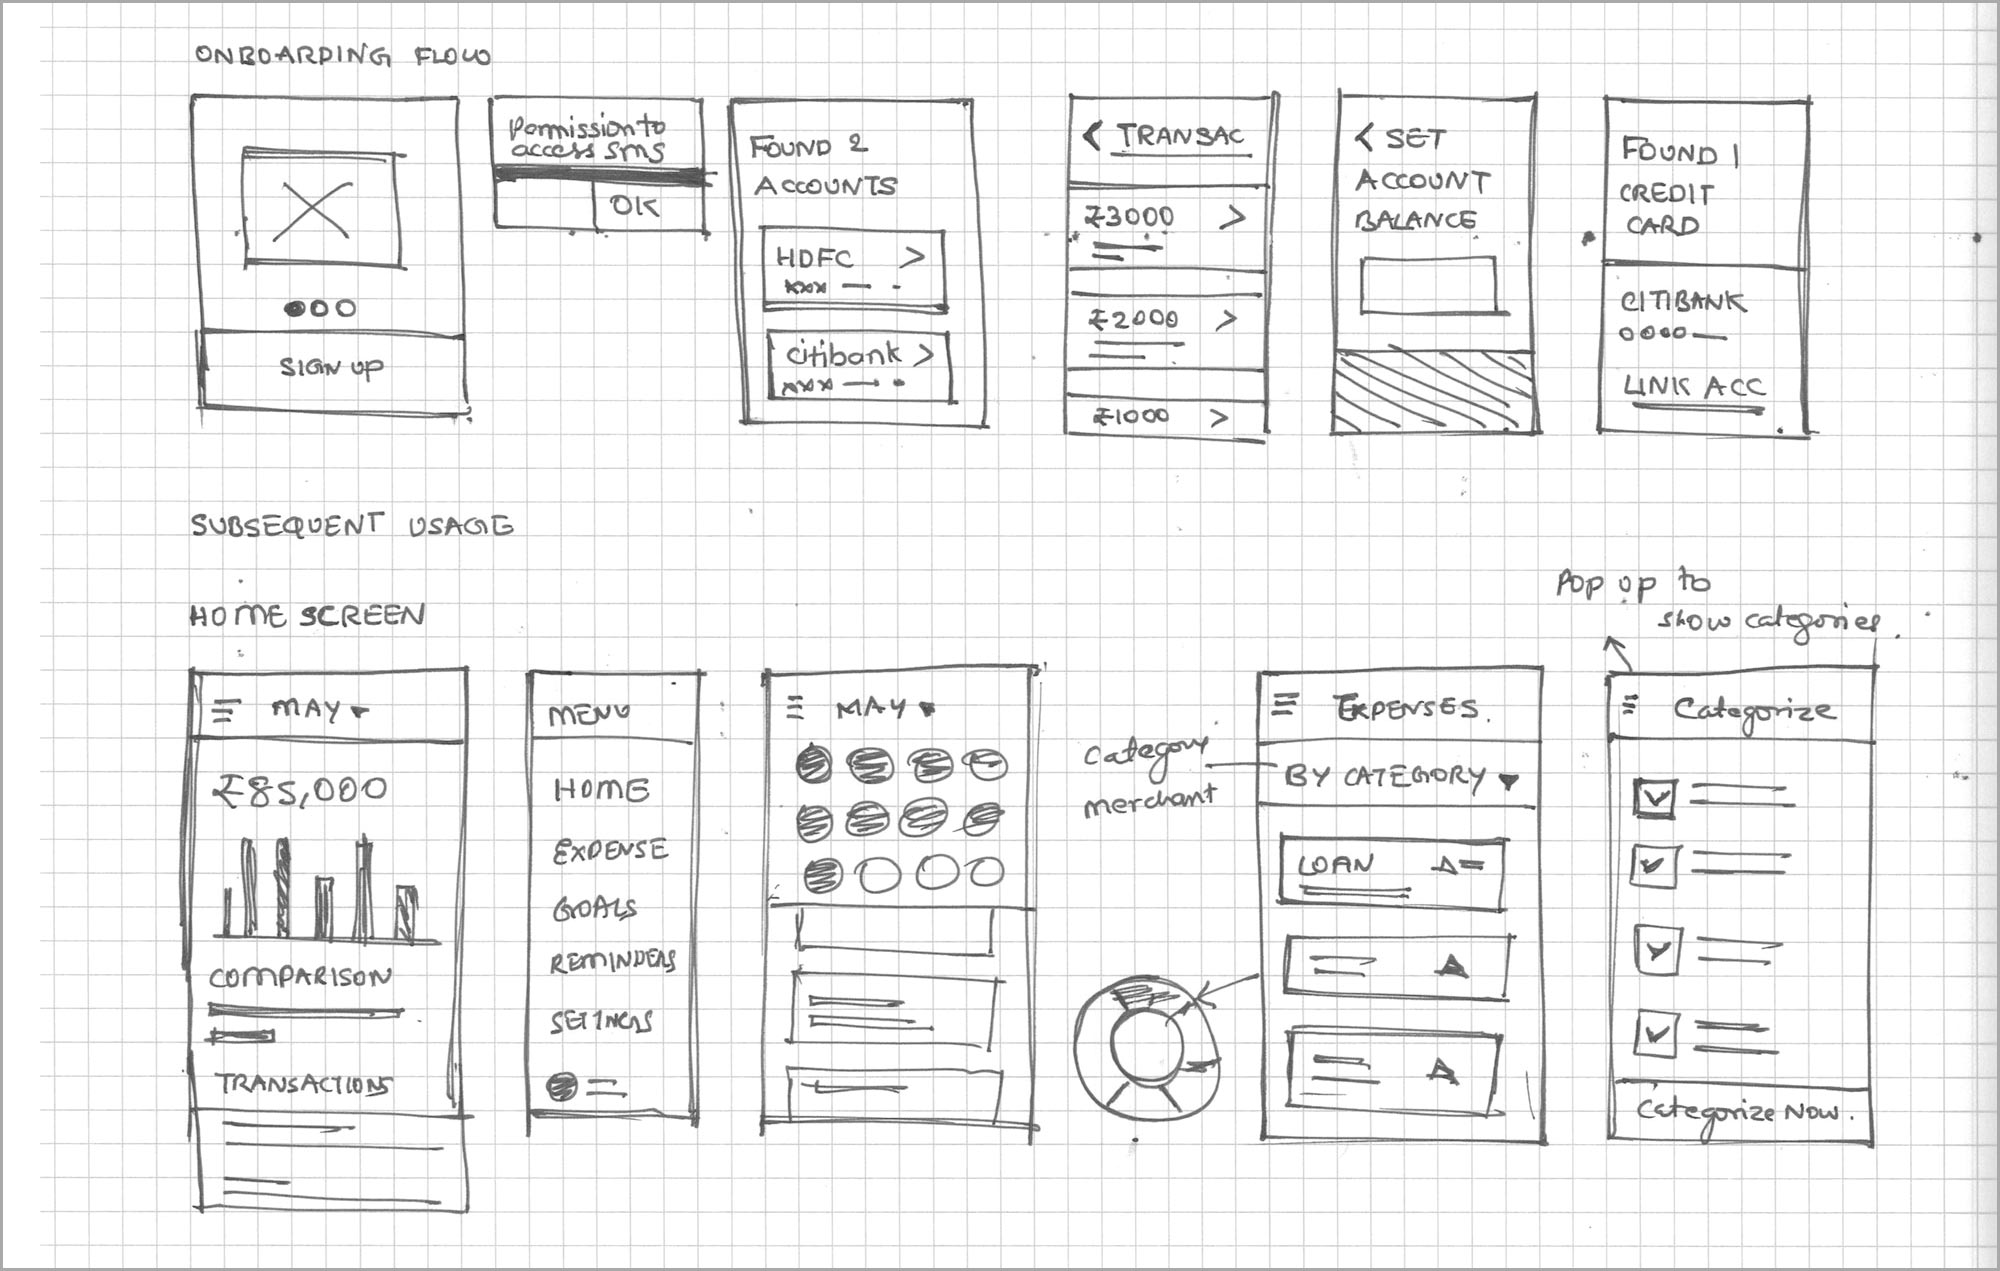 ONBOARDING FLOW
Permission to
access SMS
OK
SIGN UP
FOUND 2
ACCOUNTS
HDFC >
xxx
citibank >
xxx
< TRANSAC
₹3000 >
₹2000 >
₹1000 >
< SET
ACCOUNT
BALANCE
FOUND 1
CREDIT
CARD
CITIBANK
LINK ACC
SUBSEQUENT USAGE
HOME SCREEN
MAY
₹85,000
COMPARISON
TRANSACTIONS
MENU
HOME
EXPENSE
GOALS
REMINDERS
SETINGS
MAY
Category
merchant
EXPENSES.
BY CATEGORY
LOAN
Pop up to
show categories.
Categorize
Categorize Now.